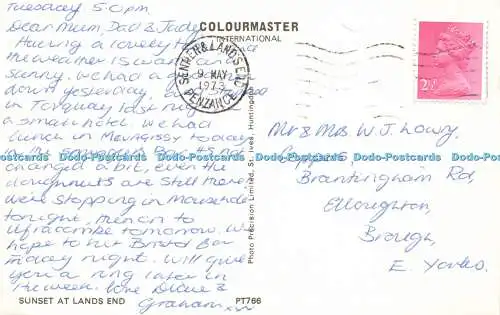 Tuesday 5.0pm.
Dear Mum, Dad & Jade
Having a lovely time and
the weather is warm and
sunny. We had a
down yesterday, but stopped
in Torquay last night
a small hotel. We had
lunch in Mevagissy today
in the
changed a bit, even the
doughnuts are still there
We're stopping in Mousehole
tonight, then on to
Ilfracombe tomorrow. We
hope to hit Bristol by
night. Will give
you a ring later in
the week. Love Diane &
Graham xx
SUNSET AT LANDS END
PT766
COLOURMASTER
INTERNATIONAL
Photo Precision Limited, St. Ives, Huntingdon
SENNEN & LANDS END
9 MAY
1973
PENZANCE
2½P
Mr & Mrs W.J. Lowry,
Coppers,
Brantingham Rd,
Elloughton,
Brough,
E. Yorks.
Dodo-Postcards Dodo-Postcards Dodo-Postcards Dodo-Postcards Dodo-Postcards